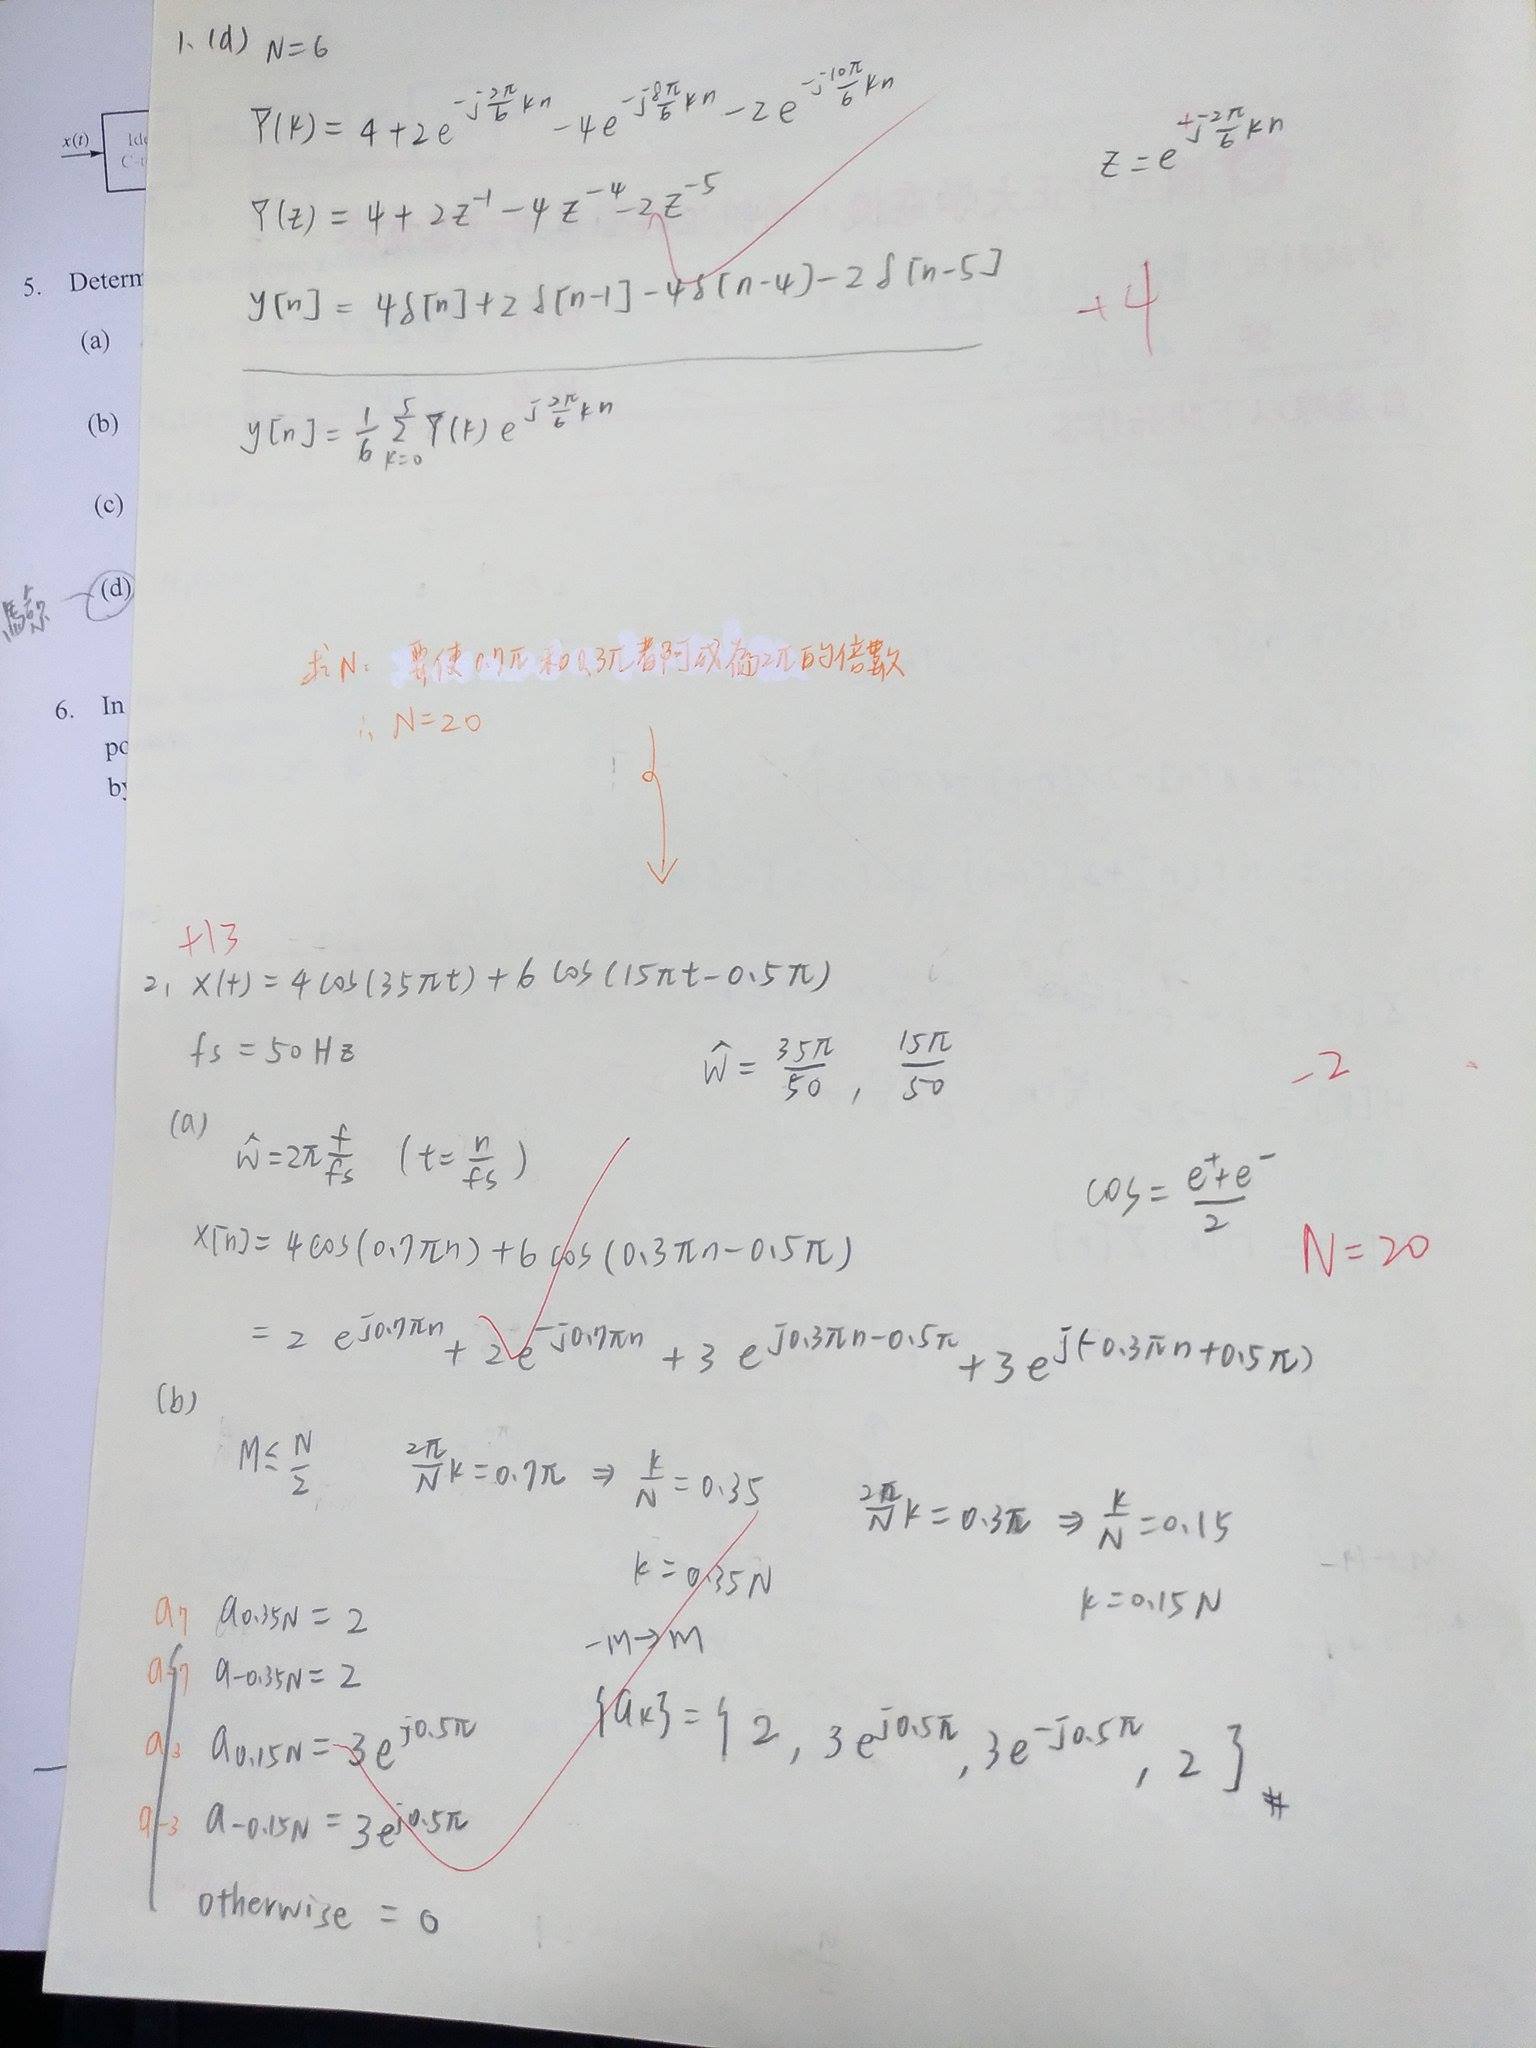 1. (d) N=6
Y(k) = 4+2e^{-j\frac{2π}{6}kn} -4e^{-j\frac{8π}{6}kn} -2e^{-j\frac{10π}{6}kn}
z = e^{+j\frac{2π}{6}kn}
Y(z) = 4 + 2z^{-1} - 4z^{-4} - 2z^{-5}
y[n] = 4δ[n]+2δ[n-1]-4δ[n-4]-2δ[n-5]
+4
y[n] = \frac{1}{6} \sum_{k=0}^{5} Y(k) e^{j\frac{2π}{6}kn}
x(t)
5. Determ
(a)
(b)
(c)
(d)
6. In
po
by
求N: 要使0.7π和0.3π都可成為2π的倍數
∴ N=20
+13
2. x(t) = 4cos(35πt)+6cos(15πt-0.5π)
fs = 50Hz
ŵ = \frac{35π}{50}, \frac{15π}{50}
-2
(a)
ŵ=2π\frac{f}{fs} (t=\frac{n}{fs})
cos = \frac{e^{+}+e^{-}}{2}
x[n] = 4cos(0.7πn)+6cos(0.3πn-0.5π)
N=20
= 2e^{j0.7πn}+2e^{-j0.7πn}+3e^{j0.3πn-0.5π}+3e^{j(-0.3πn+0.5π)}
(b)
M≤\frac{N}{2} \frac{2π}{N}k=0.7π ⇒ \frac{k}{N}=0.35
\frac{2π}{N}k=0.3π ⇒ \frac{k}{N}=0.15
k=0.35N
k=0.15N
a_7 a_{0.35N}=2
-M→M
a_{-7} a_{-0.35N}=2
a_3 a_{0.15N}=3e^{j0.5π}
{a_k}={2, 3e^{j0.5π}, 3e^{-j0.5π}, 2}#
a_{-3} a_{-0.15N}=3e^{j0.5π}
otherwise = 0